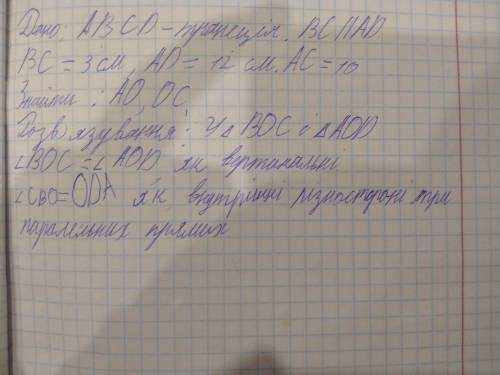 Дано: ABCD - трапеція. BC || AD
BC = 3 см, AD = 12 см. AC = 10
Знайти: AO, OC
Розв'язування: У △ BOC і △ AOD
∠BOC = ∠ AOD як вертикальні
∠CBO = ODA як внутрішні різносторонні при
паралельних прямих